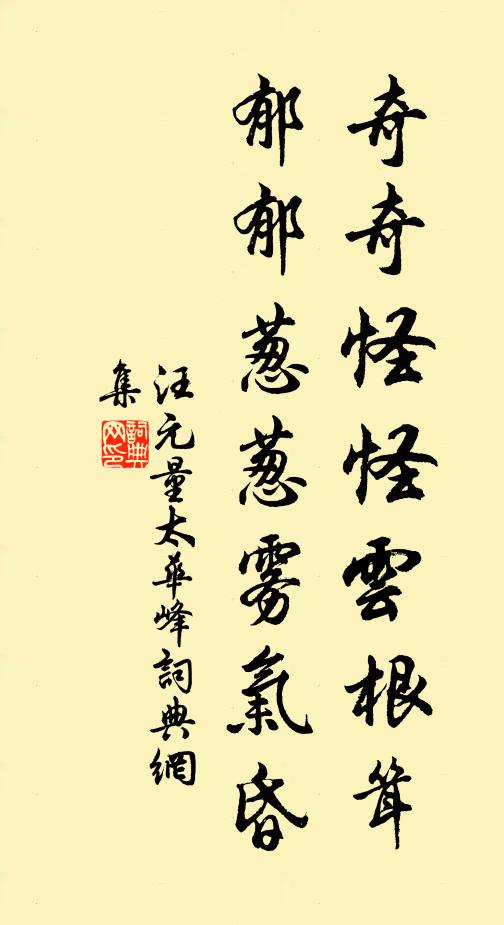 奇奇怪怪雲根聳
郁郁葱葱雾氣昏
汪元量太華峰詞典網
集
詞典网印